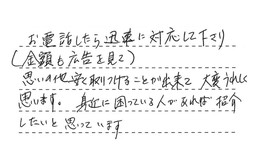 お電話したら迅速に対応して下さり
(金額も広告を見て)
思いの他安く取りつけることが出来て大変うれしく
思います。身近に困っている人があれば紹介
したいと思っています